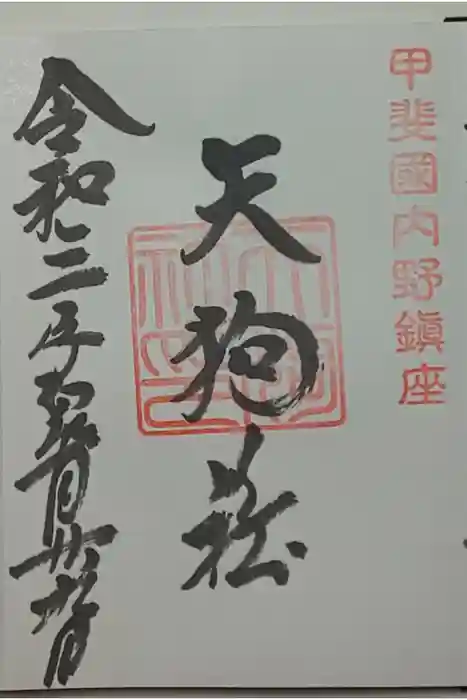 甲斐國内野鎮座
天狗社
令和二年四月廿九日